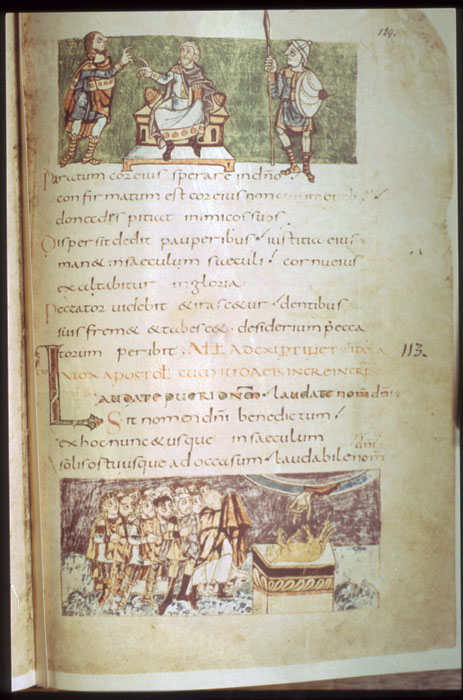 129.
Paratum cor eius sperare in dno
confirmatum est cor eius non
donec despiciat inimicos suos
Dispersit dedit pauperibus / iustitia eius
man& in saeculum saeculi / cornu eius
exaltabitur in gloria
Peccator uidebit & irasc&ur / dentibus
suis frem& & tabesc& . desiderium pecca
torum peribit
113.
UOX APOSTOL
LAUDATE PUERI DNM / laudate nom dni
Sit nomen dni benedictum
ex hoc nunc & usque in saeculum
A solis ortu usque ad occasum / laudabile nom dni